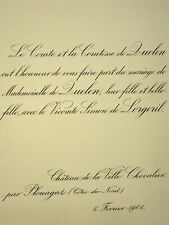 Le Comte et la Comtesse de Quelen
ont l'honneur de vous faire part du mariage de
Mademoiselle de Quelen, leur fille et belle
fille, avec le Vicomte Simon de Lorgeril.
Château de la Ville Chevalier,
par Plouagat (Côtes-du-Nord)
6 Février 1901.